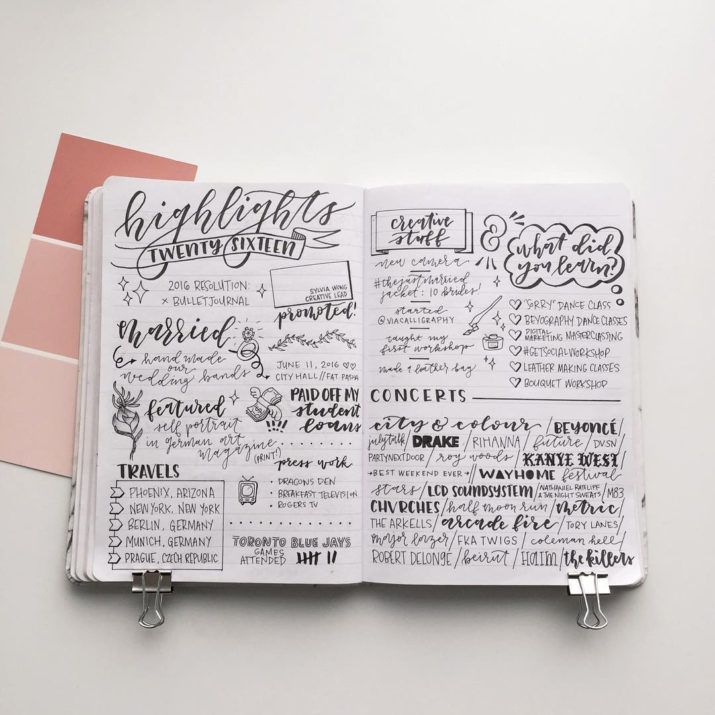 highlights
TWENTY SIXTEEN
2016 RESOLUTION:
x BULLETJOURNAL
SYLVIA WONG
CREATIVE LEAD
promoted!
married
hand made
our
wedding bands
JUNE 11, 2016 ♡♡
CITY HALL // FAT PASHA
featured
self portrait
in german art
magazine
(PRINT!)
PAID OFF MY
student
loans
press work
DRAGONS DEN
BREAKFAST TELEVISION
ROGERS TV
TRAVELS
PHOENIX, ARIZONA
NEW YORK, NEW YORK
BERLIN, GERMANY
MUNICH, GERMANY
PRAGUE, CZECH REPUBLIC
TORONTO BLUE JAYS
GAMES
ATTENDED
creative
stuff
&
new camera
#thejustmarried
jacket: 10 brides!
started
@VIACALLIGRAPHY
taught my
first workshop
made a leather bag
what did
you learn?
♡ "SORRY" DANCE CLASS
♡ BEYOGRAPHY DANCE CLASSES
♡ DIGITAL MARKETING MASTERCLASSING
♡ #GETSOCIALWORKSHOP
♡ LEATHER MAKING CLASSES
♡ BOUQUET WORKSHOP
CONCERTS
city & colour / BEYONCÉ /
july talk / DRAKE / RIHANNA / future / DVSN
PARTYNEXTDOOR / roy woods / KANYE WEST /
→ BEST WEEKEND EVER → WAYHOME festival
stars / LCD SOUNDSYSTEM / NATHANIEL RATELIFF & THE NIGHT SWEATS / M83
CHVRCHES / half moon run / metric /
THE ARKELLS / arcade fire / TORY LANES /
major lazer / FKA TWIGS / coleman hell /
ROBERT DELONGE / beirut / HAIM / the killers